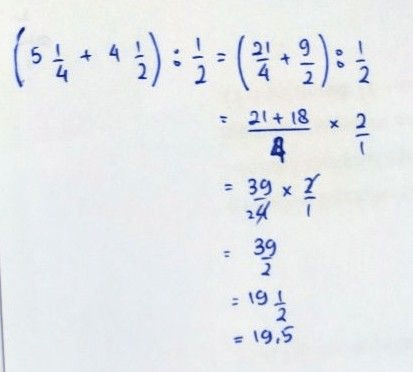 (5 1/4 + 4 1/2) : 1/2 = (21/4 + 9/2) : 1/2
= (21 + 18)/4 × 2/1
= 39/4 2 × 2/1
= 39/2
= 19 1/2
= 19,5